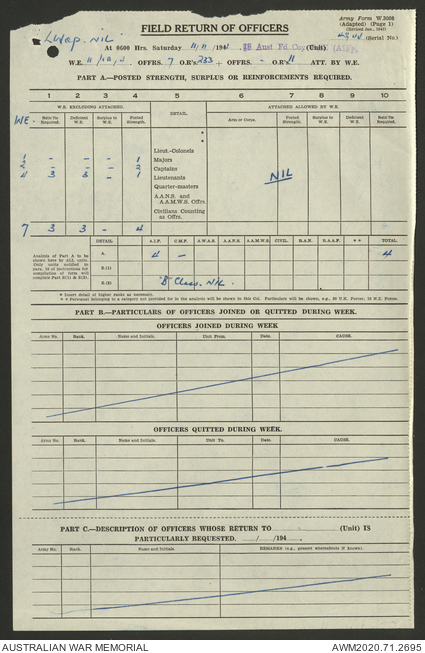 FIELD RETURN OF OFFICERS
Army Form W.3008
(Adapted) (Page 1)
(Revised Jan., 1942)
(Serial No.)
NIL.
At 0600 Hrs. Saturday 11/11/194 Aust Fd Coy (Unit) (AIF).
W.E. OFFRS. 7 O.R's. 233 + OFFRS. - O.R's 11 ATT. BY W.E.
PART A.—POSTED STRENGTH, SURPLUS OR REINFORCEMENTS REQUIRED.
1 2 3 4 5 6 7 8 9 10
W.E. EXCLUDING ATTACHED. DETAIL ATTACHED ALLOWED BY W.E.
WE. Rein'fts Required. Deficient W.E. Surplus to W.E. Posted Strength. Arm or Corps. Posted Strength. Surplus to W.E. Deficient W.E. Rein'fts Required.
*
*
Lieut.-Colonels
1 - - - 1 Majors
2 - - - 2 Captains
4 3 3 - 1 Lieutenants NIL
Quarter-masters
A.A.N.S. and A.A.M.W.S. Offrs.
Civilians Counting as Offrs.
7 3 3 - 4
Analysis of Part A to be shown here by ALL units. Only units notified in para. 16 of instructions for compilation of form will complete Part E(1) & E(2).
DETAIL A.I.F. C.M.F. A.W.A.S. A.A.N.S. A.A.M.W.S. CIVIL. R.A.N. R.A.A.F. * * TOTAL.
A. 4 - 4
E.(1)
E.(2) "B" Class. NIL.
* Insert detail of higher ranks as necessary.
* * Personnel belonging to a category not provided for in the analysis will be shown in this Col. Particulars will be shown, e.g., 20 U.K. Forces; 10 N.Z. Forces.
PART B.—PARTICULARS OF OFFICERS JOINED OR QUITTED DURING WEEK.
OFFICERS JOINED DURING WEEK
Army No. Rank. Name and Initials. Unit From. Date. CAUSE.
OFFICERS QUITTED DURING WEEK.
Army No. Rank. Name and Initials. Unit To. Date. CAUSE.
PART C.—DESCRIPTION OF OFFICERS WHOSE RETURN TO (Unit) IS
PARTICULARLY REQUESTED. / /194
Army No. Rank. Name and Initials. REMARKS (e.g., present whereabouts if known).
AUSTRALIAN WAR MEMORIAL
AWM2020.71.2695